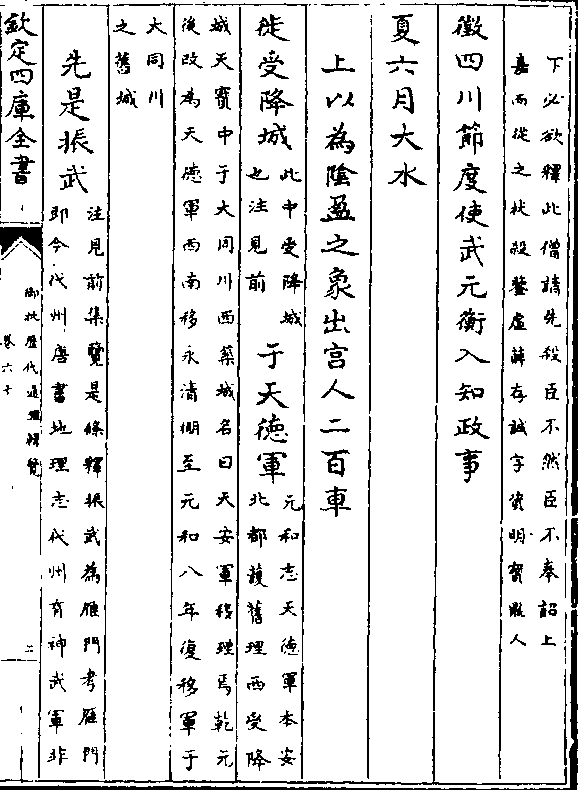 下必欲釋此僧請先殺臣不然臣不奉詔上
嘉而從之杖殺鑒虛薛存誠字資明寳鼎人
徵四川節度使武元衡入知政事
夏六月大水
上以為陰盈之象出宫人二百車
徙受降城
此中受降城
也注見前
于天德軍
元和志天德軍本安
北都護舊理西受降
城天寳中于大同川西築城名曰天安軍移理焉乾元
後改為天德軍西南移永清栅至元和八年復移軍于
大同川
之舊城
先是振武
注見前集覽是條釋振武為雁門考雁門
即今代州唐書地理志代州有神武軍非
欽定四庫全書
御批歷代通鑑輯覽
卷六十
二